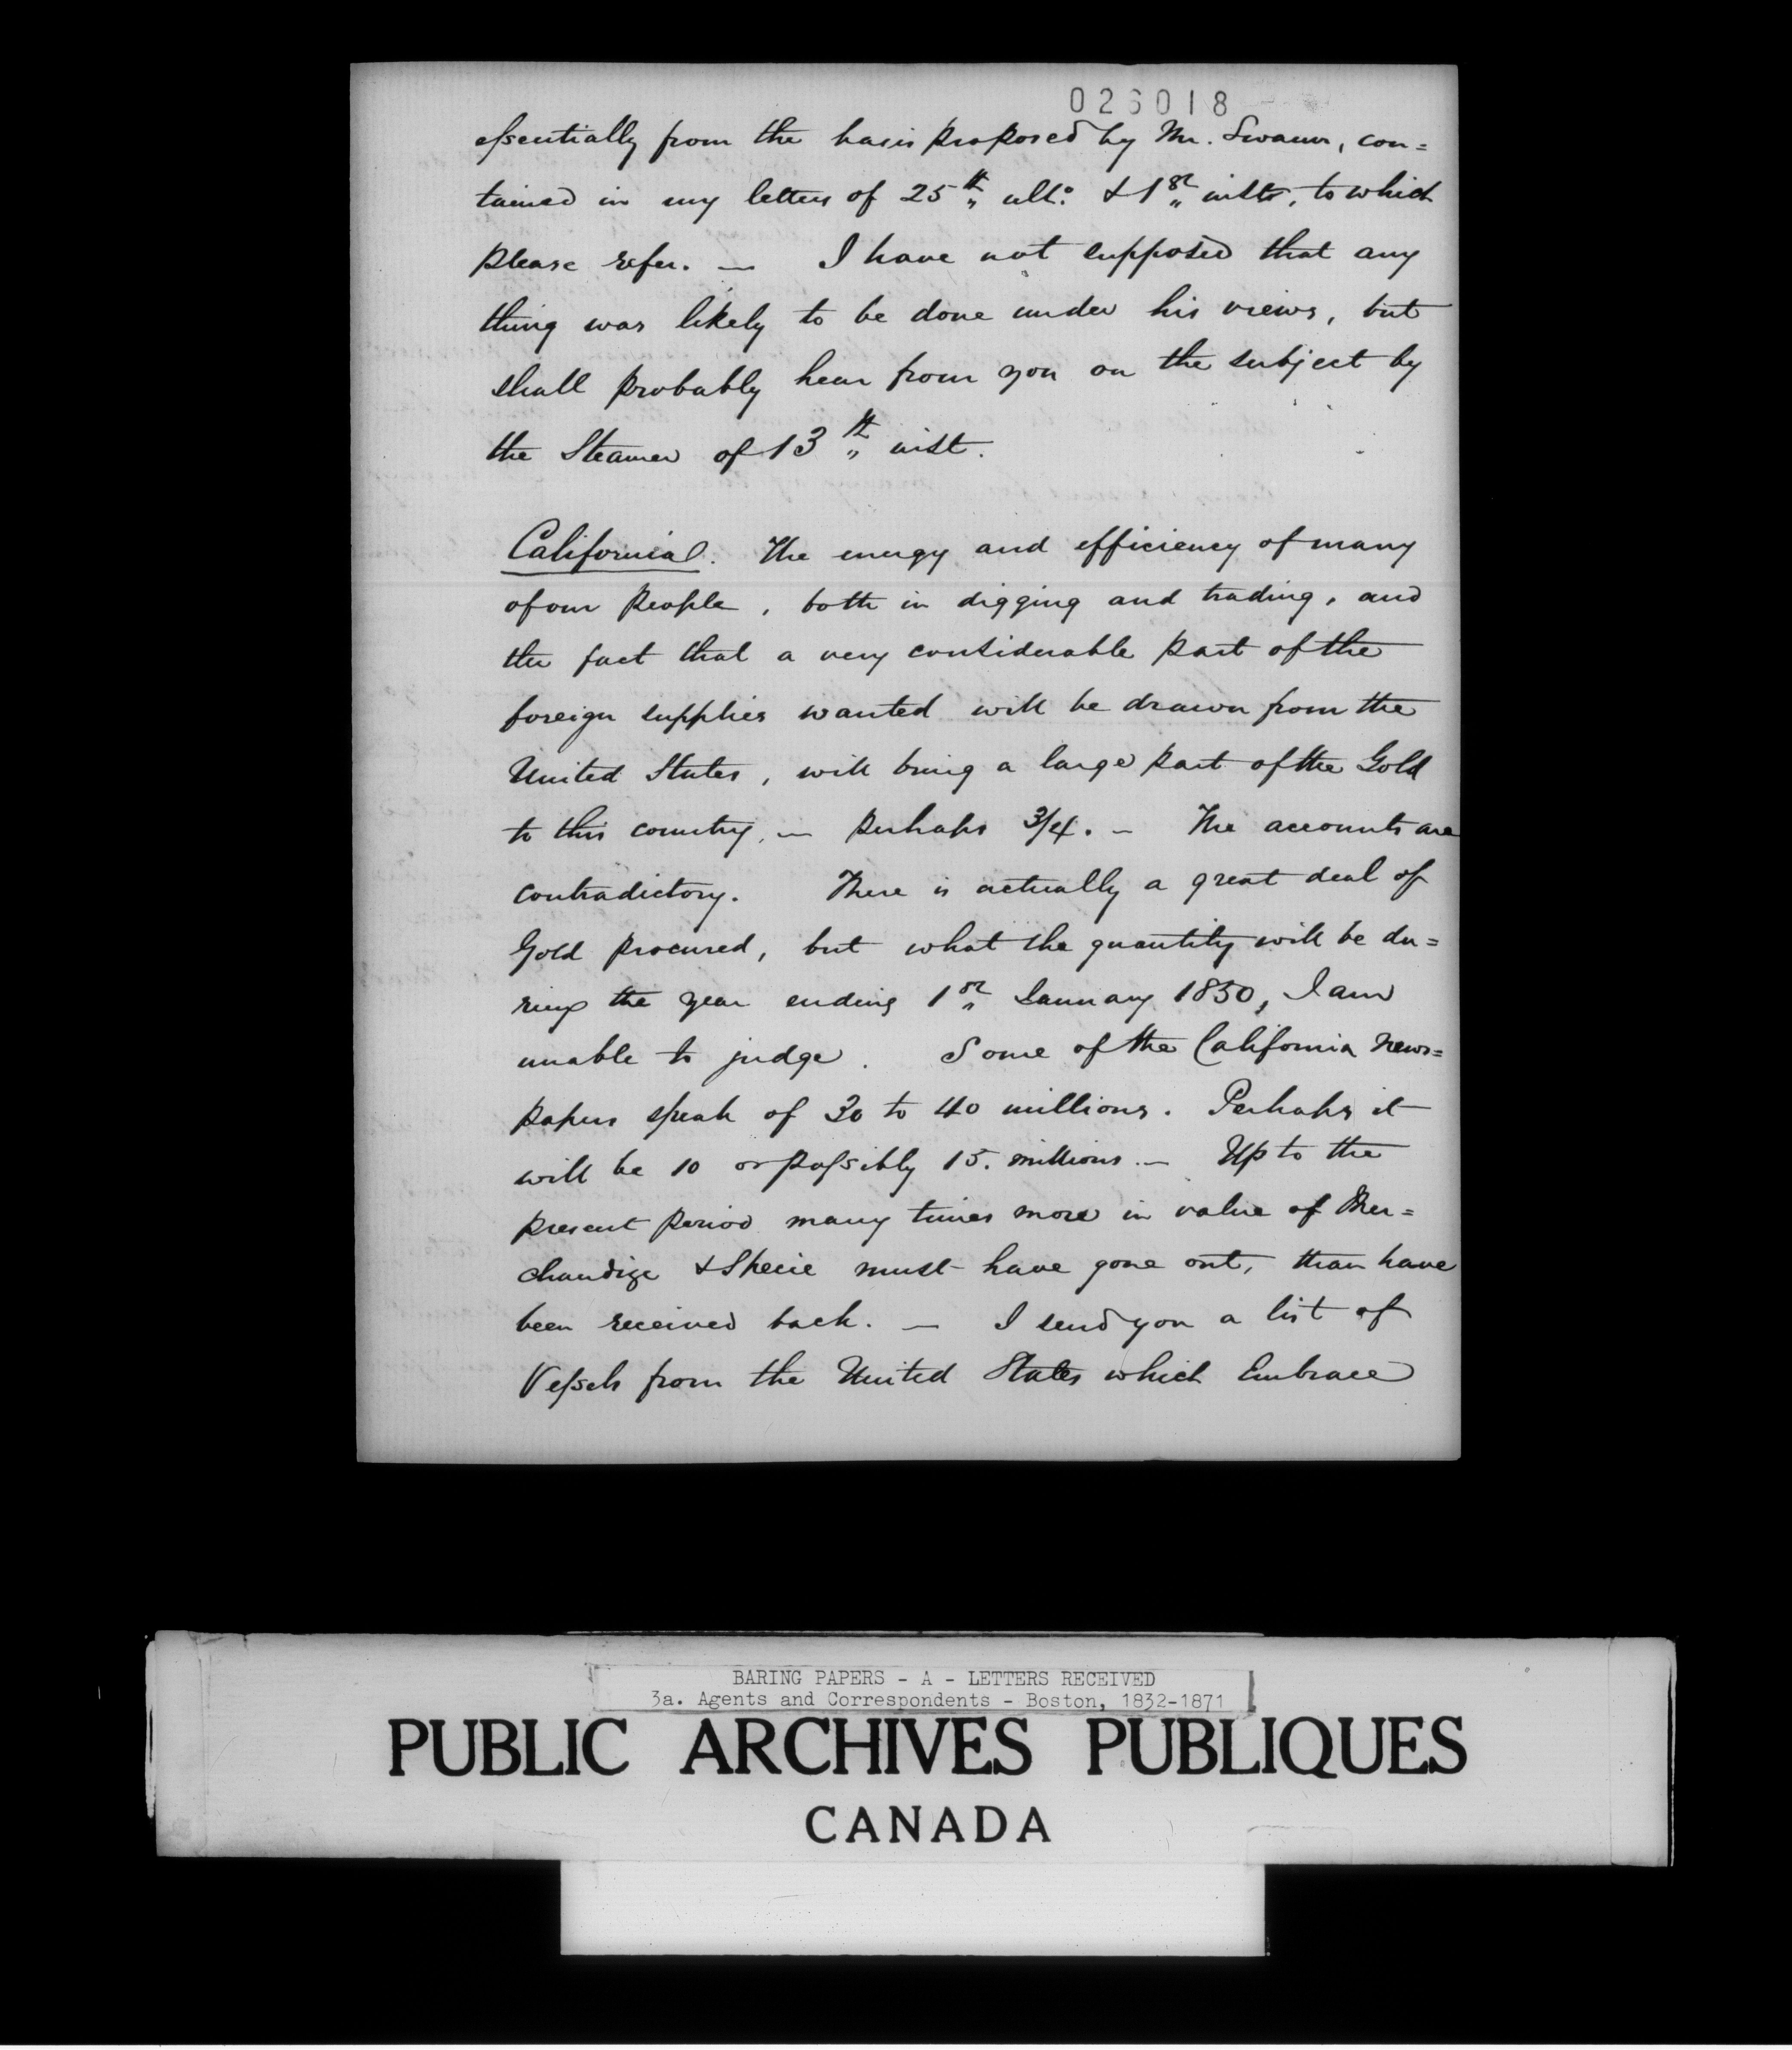 026018
essentially from the basis proposed by Mr. Swann, con=
tained in my letters of 25th ulto: & 1st insts, to which
please refer. — I have not supposed that any
thing was likely to be done under his views, but
shall probably hear from you on the subject by
the Steamer of 13th inst.
California. The energy and efficiency of many
of our people, both in digging and trading, and
the fact that a very considerable part of the
foreign supplies wanted will be drawn from the
United States, will bring a large part of the Gold
to this country, — perhaps 3/4. — The accounts are
contradictory. There is actually a great deal of
Gold procured, but what the quantity will be du=
ring the year ending 1st January 1850, I am
unable to judge. Some of the California News=
papers speak of 30 to 40 millions. Perhaps it
will be 10 or possibly 15. millions. — Up to the
present period many times more in value of Mer=
chandize & Specie must have gone out, than have
been received back. — I send you a list of
Vessels from the United States which Embrace
BARING PAPERS - A - LETTERS RECEIVED
3a. Agents and Correspondents - Boston, 1832-1871
PUBLIC ARCHIVES PUBLIQUES
CANADA